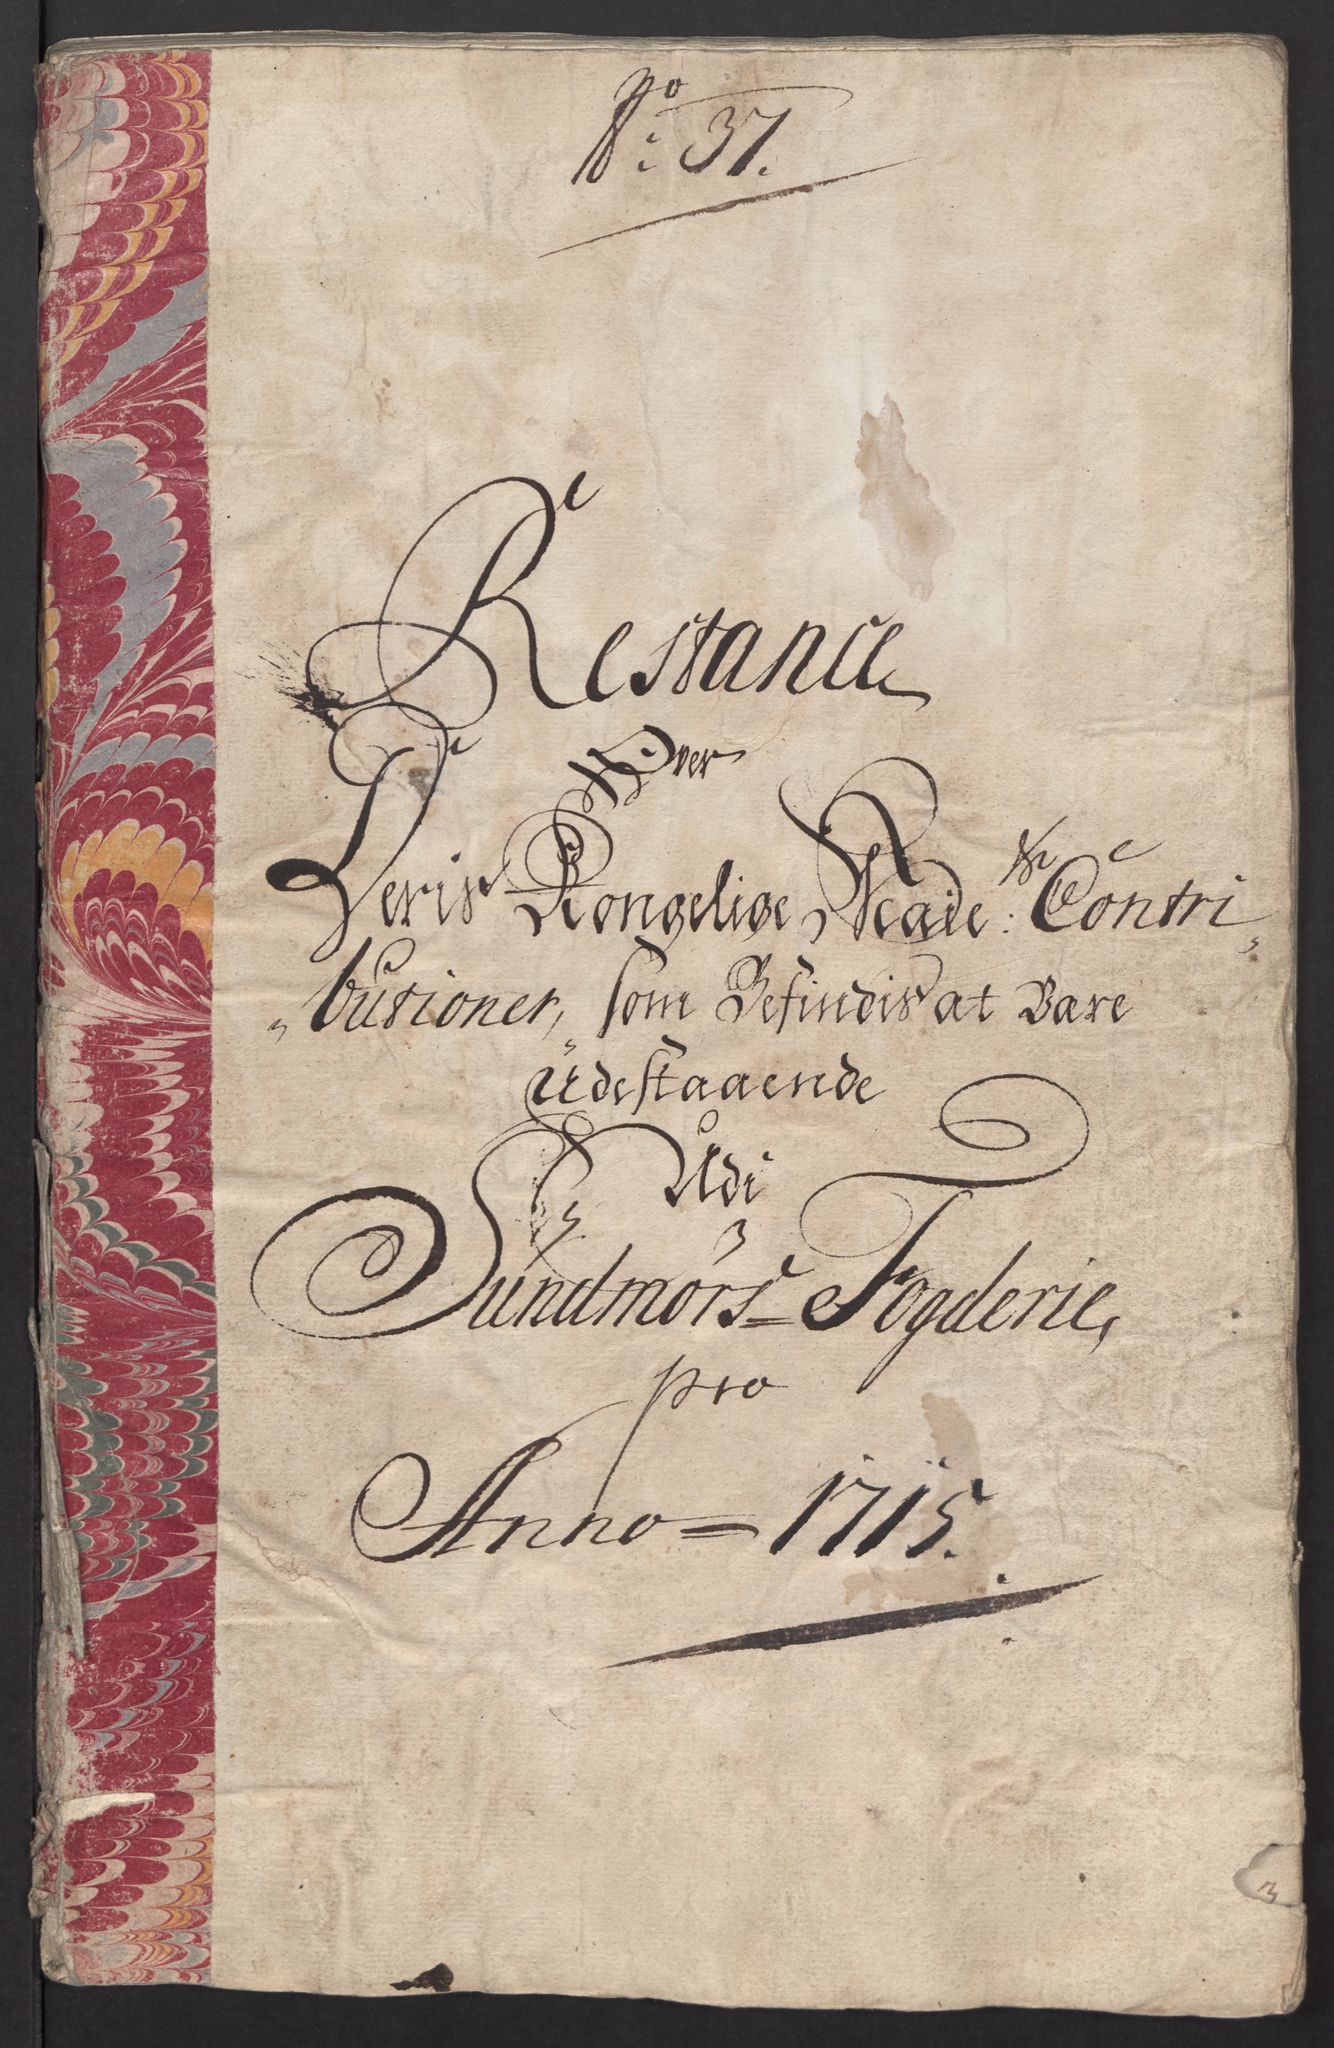 No: 37.
Restance
Over
Deris Kongelige Maie:ts Contri„
„butioner, som Befindis at Være
Udestaaende
Udi
Sundmörs=Fogderie,
pro
Anno=1715.